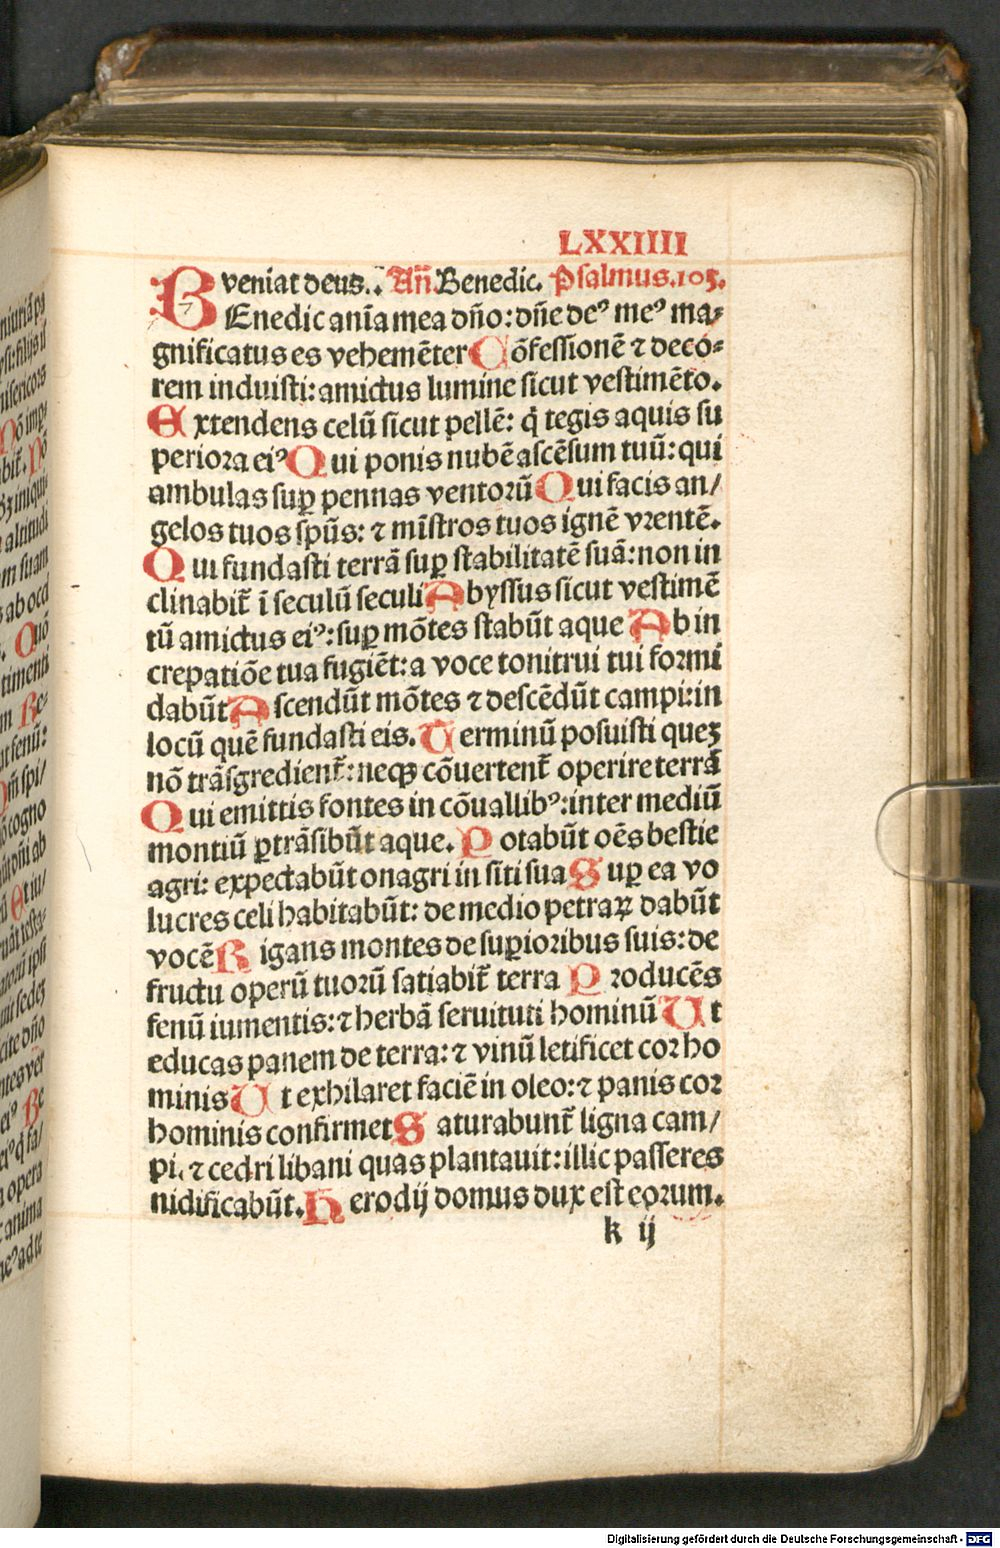 LXXIIII
veniat deus. Añ. Benedic. Psalmus.103.
BEnedic aĩa mea dño: dñe deꝰ meꝰ ma-
gnificatus es vehemẽter Cõfessionẽ ⁊ deco-
rem induisti: amictus lumine sicut vestimẽto.
Extendens celũ sicut pellẽ: q̃ tegis aquis su
periora eiꝰ Qui ponis nubẽ ascẽsum tuũ: qui
ambulas suꝑ pennas ventorũ Qui facis an/
gelos tuos spũs: ⁊ mĩstros tuos ignẽ vrentẽ.
Qui fundasti terrã suꝑ stabilitatẽ suã: non in
clinabit̃ ĩ seculũ seculi Abyssus sicut vestimẽ
tũ amictus eiꝰ: suꝑ mõtes stabũt aque Ab in
crepatiõe tua fugiẽt: a voce tonitrui tui formi
dabũt Ascendũt mõtes ⁊ descẽdũt campi: in
locũ quẽ fundasti eis. Terminũ posuisti queꝫ
nõ trãsgredient̃: neqꝫ cõuertent̃ operire terrã
Qui emittis fontes in cõuallibꝰ: inter mediũ
montiũ ꝑtrãsibũt aque. Potabũt oẽs bestie
agri: expectabũt onagri in siti sua Suꝑ ea vo
lucres celi habitabũt: de medio petraꝝ dabũt
vocẽ Rigans montes de suꝑioribus suis: de
fructu operũ tuorũ satiabit̃ terra Producẽs
fenũ iumentis: ⁊ herbã seruituti hominũ Ut
educas panem de terra: ⁊ vinũ letificet cor ho
minis Ut exhilaret faciẽ in oleo: ⁊ panis cor
hominis confirmet Saturabunt̃ ligna cam/
pi. ⁊ cedri libani quas plantauit: illic passeres
nidificabũt. Herodij domus dux est eorum.
k ij
Digitalisierung gefördert durch die Deutsche Forschungsgemeinschaft - DFG